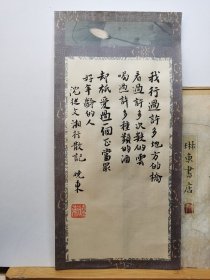 我行過許多地方的橋
看過許多次數的雲
喝過許多種類的酒
却祇愛過一個正當最
好年齡的人
沈從文湘行散記 晓東
琳東書店